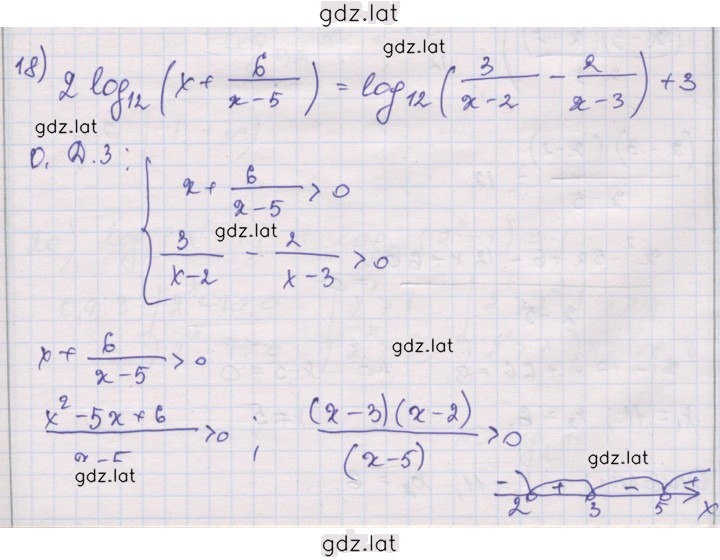 gdz.lat
18) 2 log₁₂(x + 6/(x-5)) = log₁₂(3/(x-2) - 2/(x-3)) + 3
gdz.lat
gdz.lat
О.Д.З:
{ x + 6/(x-5) > 0
gdz.lat
3/(x-2) - 2/(x-3) > 0
x + 6/(x-5) > 0
gdz.lat
(x² - 5x + 6)/(x-5) > 0 , ((x-3)(x-2))/((x-5)) > 0
gdz.lat
gdz.lat
- + - +
2 3 5 x
gdz.lat